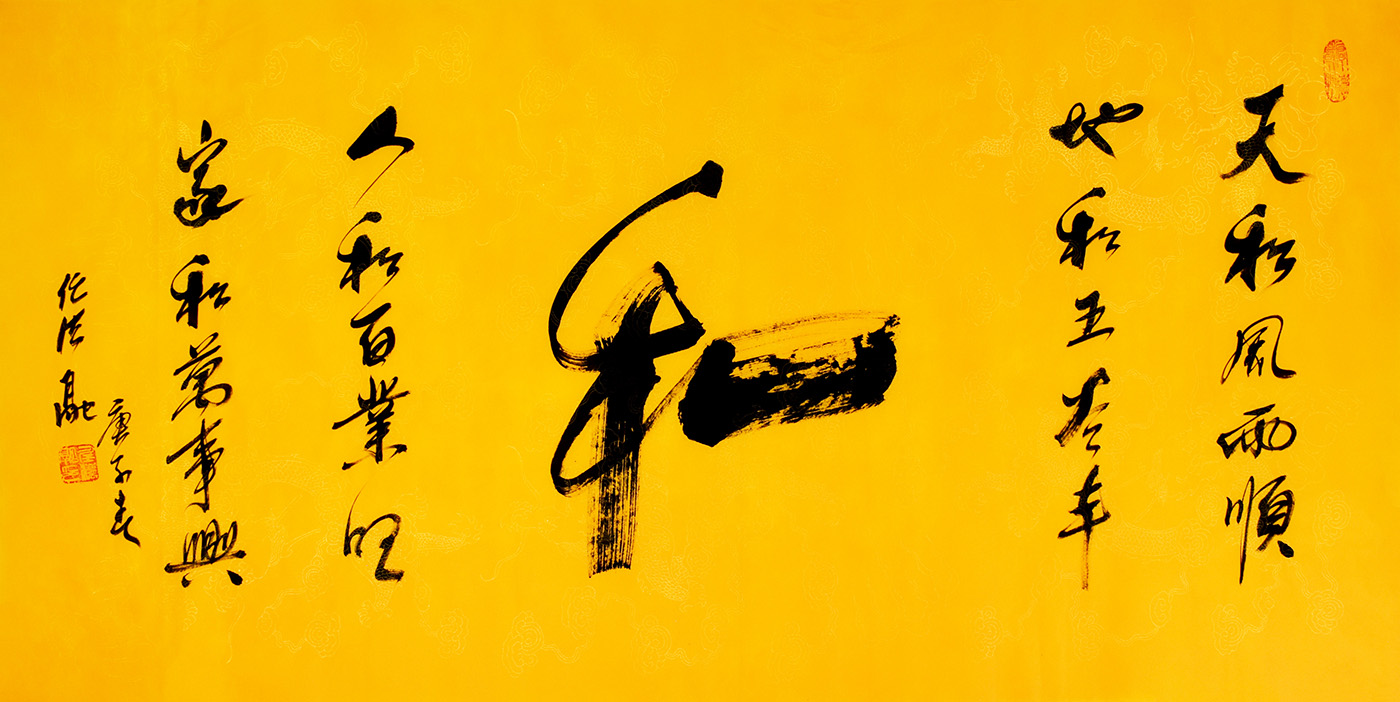 天和風雨順
地和五谷丰
和
人和百業旺
家和萬事興
庚子春
任法融